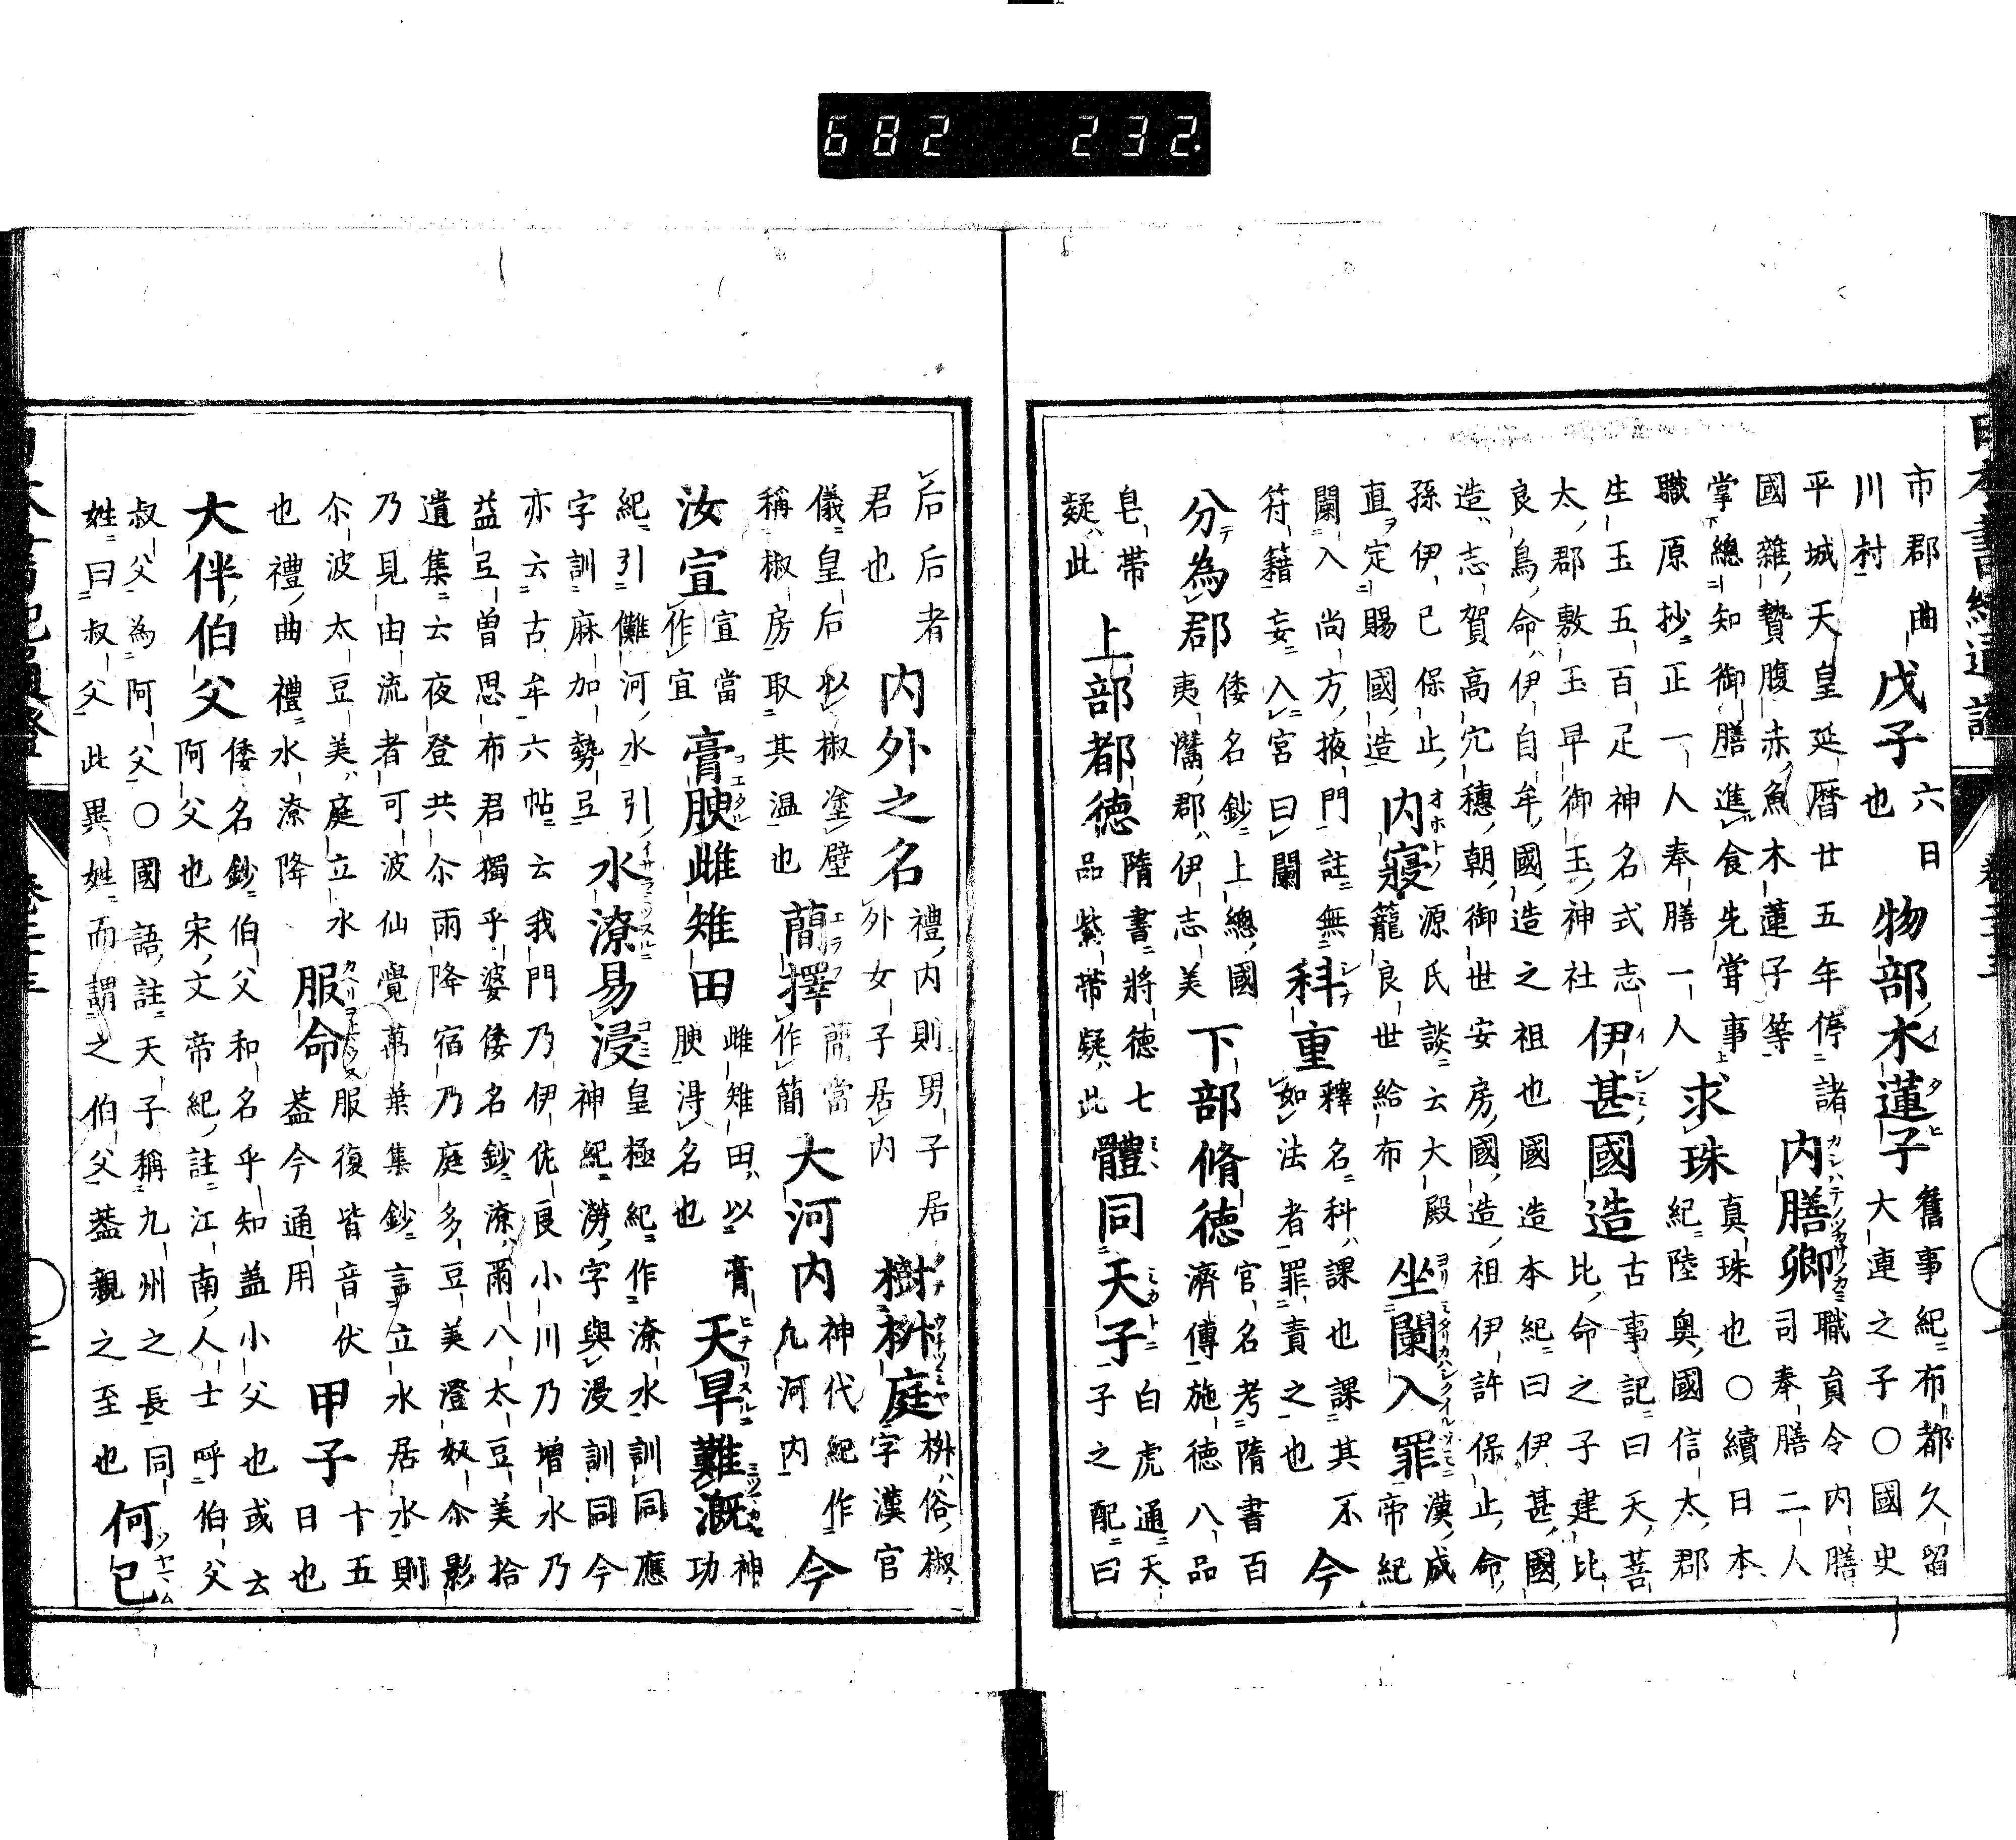 市郡曲川村戊子六日也物部木蓮子舊事紀布都久留大連之子〇國史
平城天皇延暦廿五年停諸國雜贄腹赤魚木蓮子等内膳卿職員令内膳司奉膳二人
掌總知御膳進食先甞事職原抄正一人奉膳一人求珠真珠也〇續日本紀陸奥國信太郡
生玉五百足神名式志太郡敷玉早御玉神社伊甚國造古事記曰天菩比命之子建比
良鳥命伊自牟國造之祖也國造本紀曰伊甚國造志賀高穴穗朝御世安房國造祖伊許保止命
孫伊己保止直定賜國造内寢源氏談云大殿籠良世給布坐闌入罪漢成帝紀
闌入尚方掖門註無符籍妄入宮曰闌科重釋名科課也課其不如法者罪責之也今
分為郡倭名鈔上總國夷灊郡伊志美下部脩德官名考隋書百濟傳施德八品
皂帶疑此上部都德隋書將德七品紫帶疑此體同天子白虎通天子之配曰
后后者君也内外之名禮内則男子居外女子居内樹椒庭椒俗椒字漢官
儀皇后以椒塗壁稱椒房取其温也蕳擇蕳當作簡大河内神代紀作凡河内今
汝宣宣當作宜膏腴雌雉田雌雉田以膏腴得名也天旱難漑神功
紀引儺河水引字訓麻加勢弖水潦易浸皇極紀作潦水訓同應神紀澇字與浸訓同今
亦云古牟六帖云我門乃伊佐良小川乃増水乃益弖曽思布君獨乎婆倭名鈔潦爾八太豆美拾
遺集云夜登共尓雨降宿乃庭多豆美澄奴尓影乃見由流者可波仙覺萬葉集鈔言立水居水則
尓波太豆美庭立水也禮曲禮水潦降服命服復皆音伏蓋今通用甲子十五日也
大伴伯父倭名鈔伯父和名乎知蓋小父也或云阿父也宋文帝紀註江南人士呼伯父
叔父為阿父〇國語註天子稱九州之長同姓曰叔父此異姓而謂之伯父蓋親之至也何已
682 232